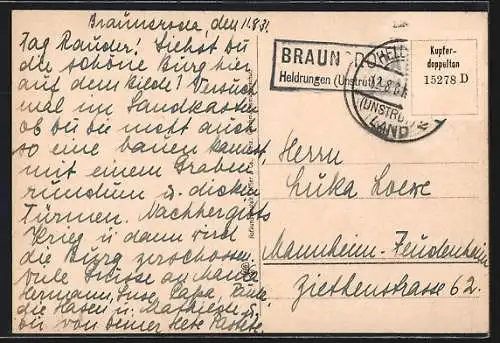 Braunsroda, den 11.8.31.
Tag Siehst Du
die schöne Burg hier
auf dem Bilde? Versuch
mal im Sandkasten
ob du sie nicht auch
so eine bauen kannst,
mit einem Graben
rundum u. dicken
Türmen. Nachher gibts
Krieg u. dann wird
die Burg zerschossen.
Viele Grüsse an
Hermann, Papa,
die Hasen u. u.
du von deiner
BRAUN
Heldrungen (Unstrut)
HELD
12.8.31
(UNSTRUT)
LAND
Kupfer-
doppelton
15278 D
Herrn
Luka Loewe
Mannheim-Feudenheim
Ziethenstrasse 62.